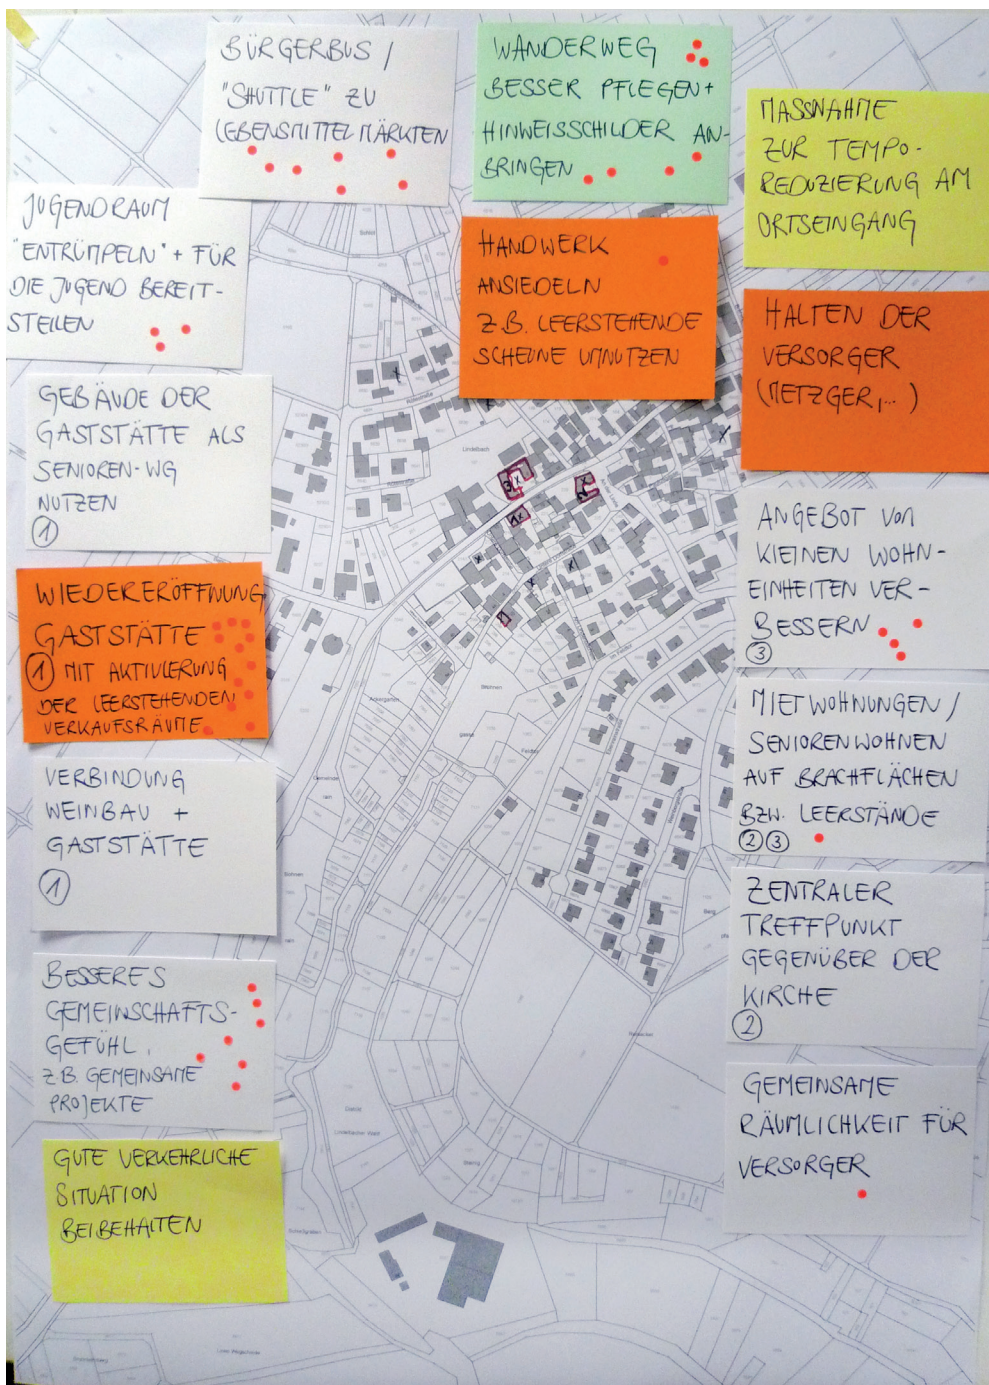 BÜRGERBUS /
"SHUTTLE" ZU
LEBENSMITTELMÄRKTEN
WANDERWEG
BESSER PFLEGEN +
HINWEISSCHILDER AN-
BRINGEN
MASSNAHME
ZUR TEMPO-
REDUZIERUNG AM
ORTSEINGANG
JUGENDRAUM
"ENTRÜMPELN" + FÜR
DIE JUGEND BEREIT-
STELLEN
HANDWERK
ANSIEDELN
Z.B. LEERSTEHENDE
SCHEUNE UMNUTZEN
HALTEN DER
VERSORGER
(METZGER,...)
GEBÄUDE DER
GASTSTÄTTE ALS
SENIOREN-WG
NUTZEN
1
ANGEBOT VON
KLEINEN WOHN-
EINHEITEN VER-
BESSERN
3
WIEDERERÖFFNUNG
GASTSTÄTTE
1 MIT AKTIVIERUNG
DER LEERSTEHENDEN
VERKAUFSRÄUME
MIETWOHNUNGEN /
SENIORENWOHNEN
AUF BRACHFLÄCHEN
BZW. LEERSTÄNDE
2 3
VERBINDUNG
WEINBAU +
GASTSTÄTTE
1
ZENTRALER
TREFFPUNKT
GEGENÜBER DER
KIRCHE
2
BESSERES
GEMEINSCHAFTS-
GEFÜHL,
Z.B. GEMEINSAME
PROJEKTE
GEMEINSAME
RÄUMLICHKEIT FÜR
VERSORGER
GUTE VERKEHRLICHE
SITUATION
BEIBEHALTEN
Lindelbach